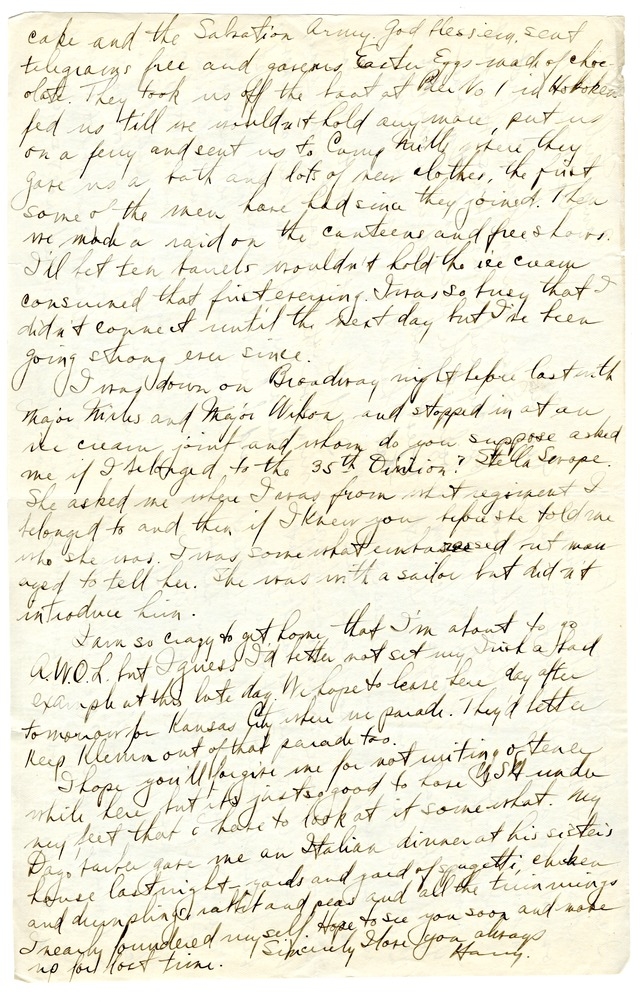 cake and the Salvation Army. God bless'em, sent
telegrams free and gave us Easter Eggs made of choc-
olate. They took us off the boat at Pier No 1 in Hoboken
fed us till we wouldn't hold any more, put us
on a ferry and sent us to Camp Mills where they
gave us a bath and lots of new clothes, the first
some of the men have had since they joined. Then
we made a raid on the canteens and free shows.
I'll bet ten barrels wouldn't hold the ice cream
consumed that first evening. I was so busy that I
didn't connect until the next day but I've been
going strong ever since.
I was down on Broadway night before last with
Major Miles and Major Wilson, and stopped in at an
ice cream joint and whom do you suppose asked
me if I belonged to the 35th Division? Stella Swope.
She asked me where I was from what regiment I
belonged to and then if I knew you before she told me
who she was. I was somewhat embarressed but man
aged to tell her. She was with a sailor but didn't
introduce him.
I am so crazy to get home that I'm about to go
A.W.O.L. but I guess I'd better not set my Irish a bad
example at this late day. We hope to leave here day after
tomorrow for Kansas City where we parade. They'd better
keep Klemm out of that parade too.
I hope you'll forgive me for not writing oftener
while here but its just so good to have USA under
my feet that I have to look at it somewhat. My
Dago barber gave me an Italian dinner at his sister's
house last night - yards and yards of spagetti, chicken
and dumplings rabbit and peas and all the trimmings
I nearly foundered myself. Hope to see you soon and make
up for lost time. Sincerely I love you always
Harry.